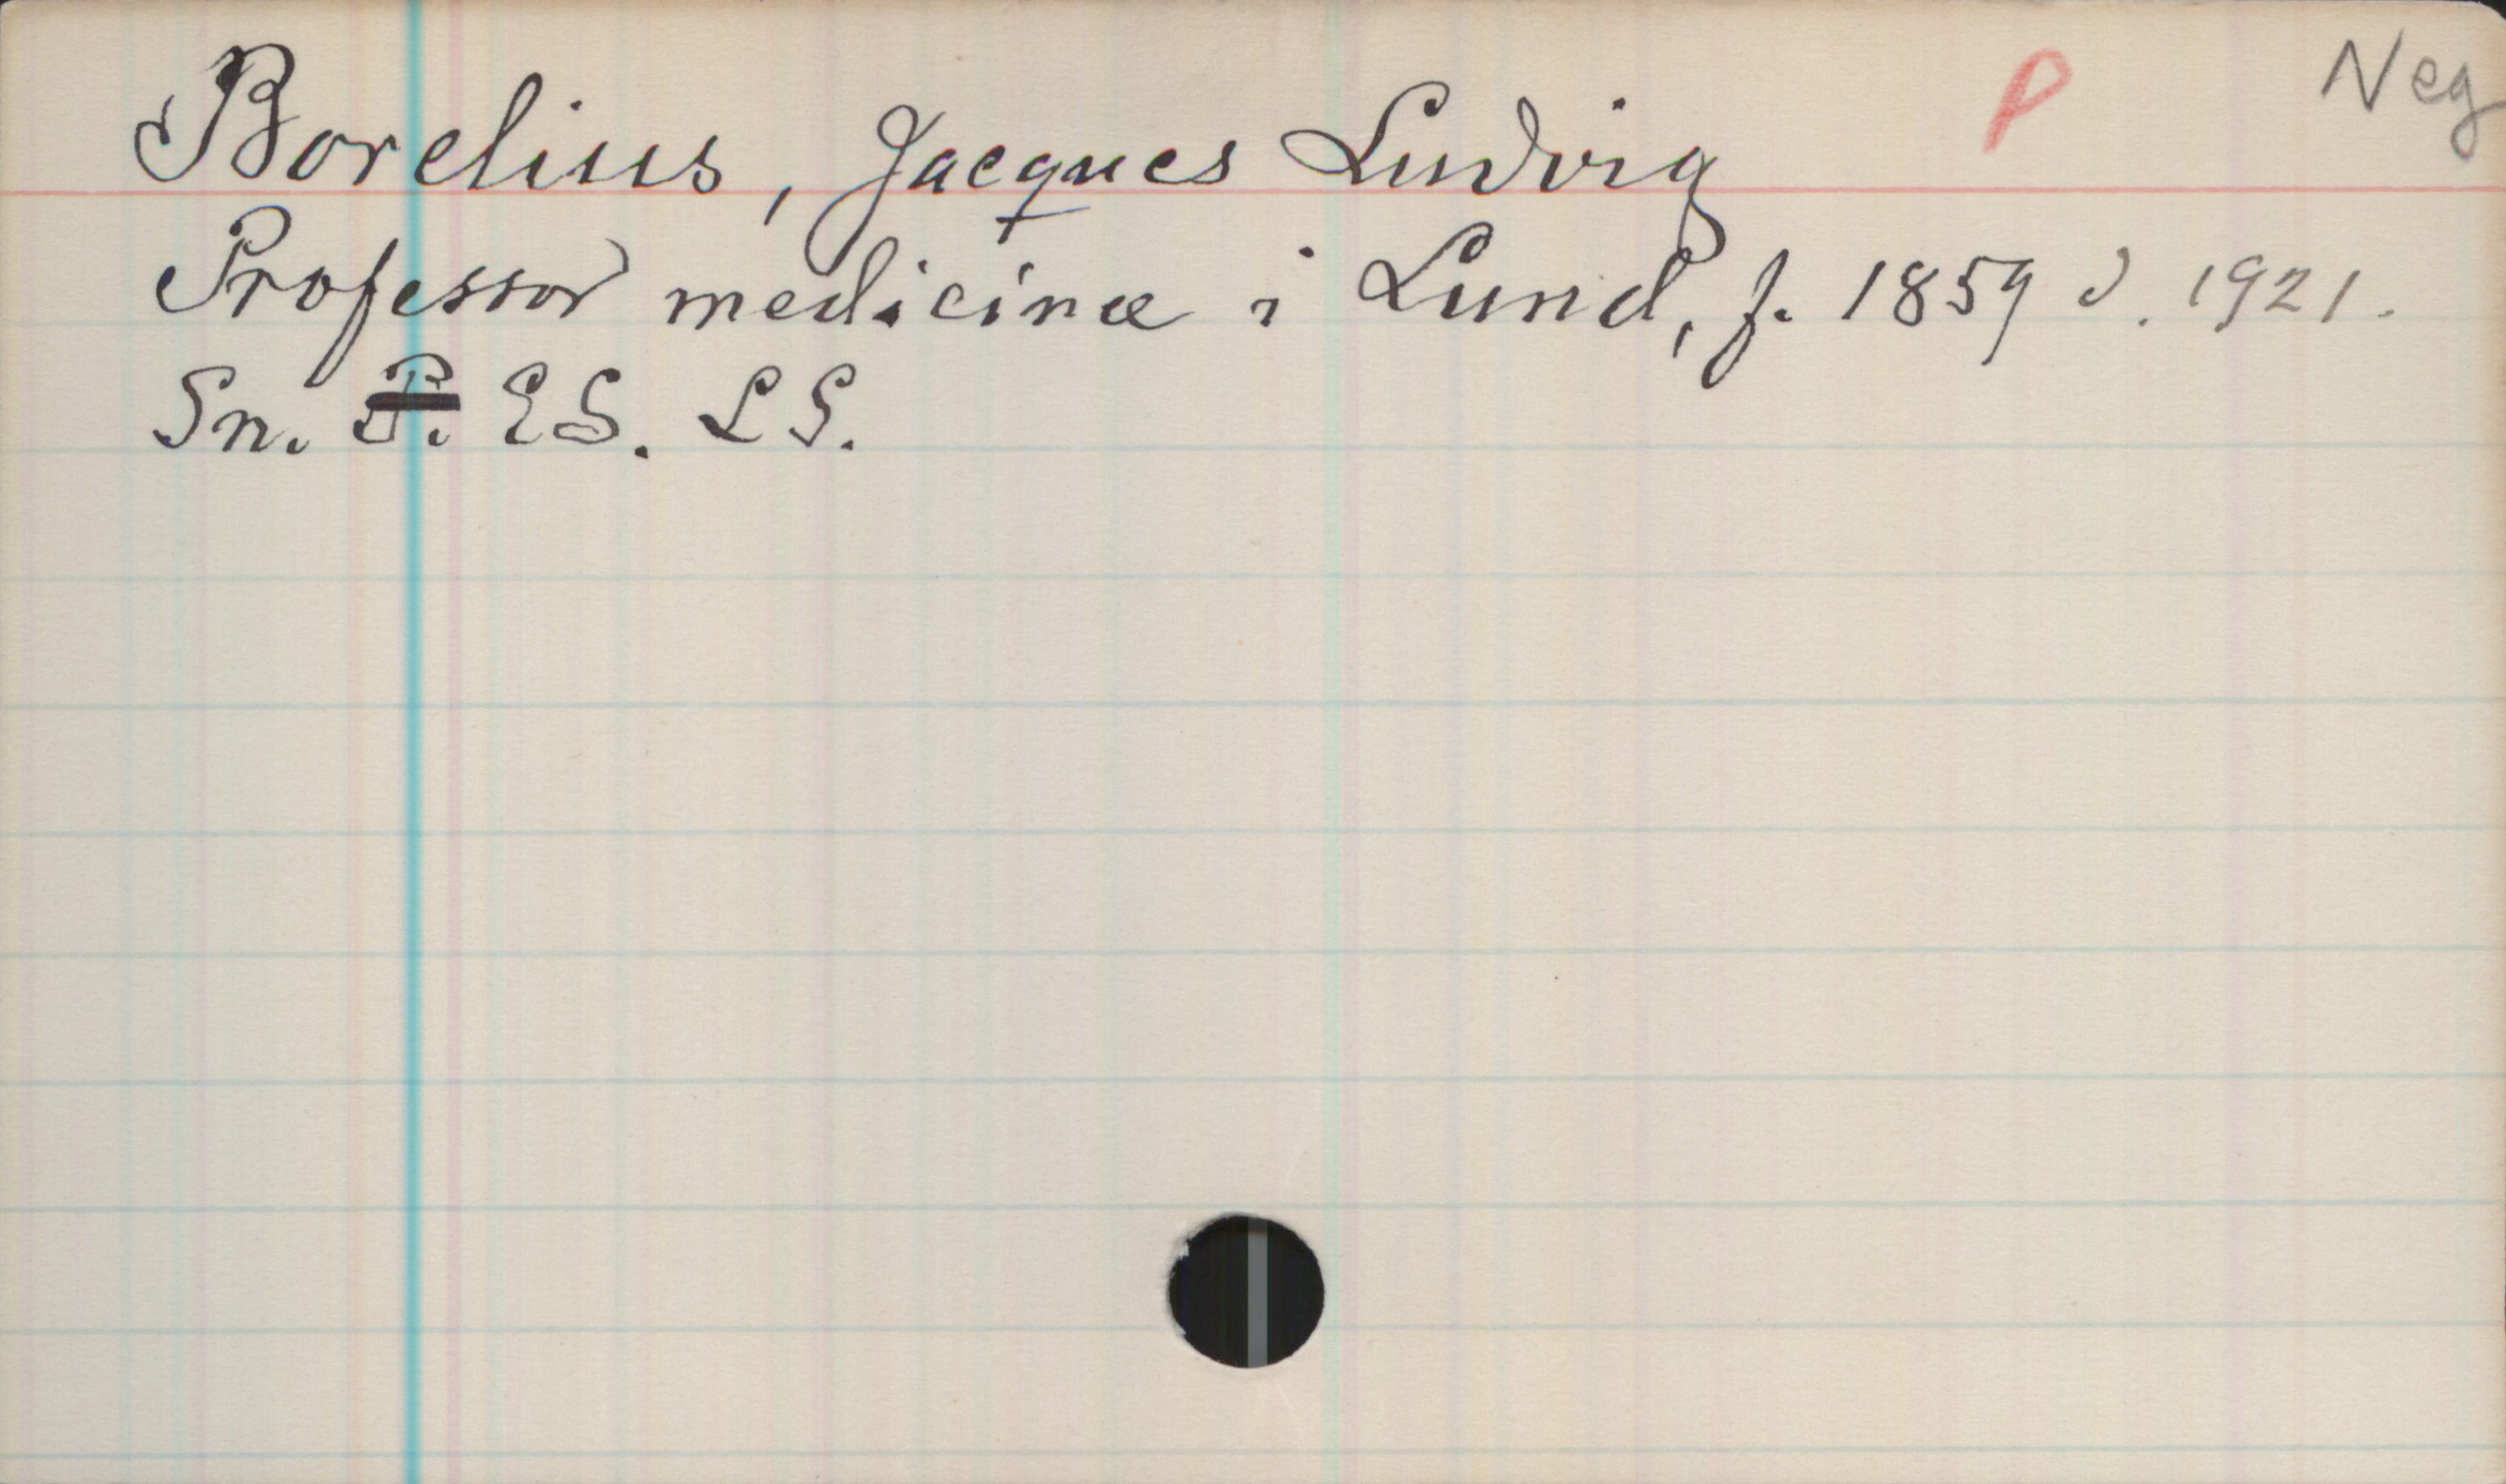 Borelius, Jacques Ludvig P Neg
Professor medicinæ i Lund, f. 1859 d. 1921.
Sn. P. ES. LS.